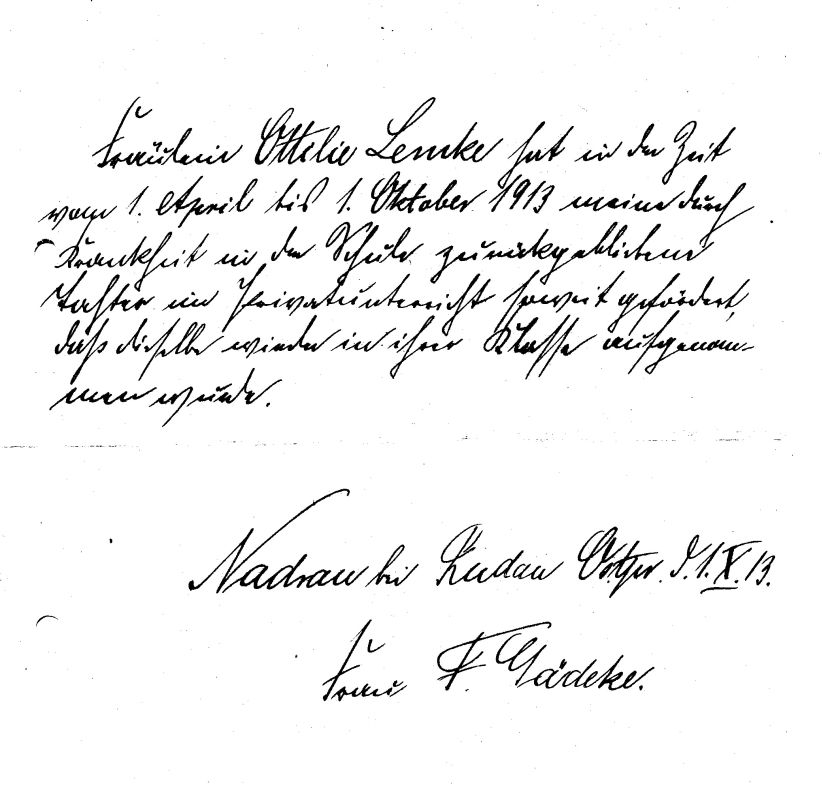 Fräulein Ottilie Lemke hat in der Zeit
vom 1. April bis 1. Oktober 1913 meine durch
Krankheit in der Schule zurückgebliebene
Tochter im Privatunterricht soweit gefördert,
daß dieselbe wieder in ihrer Klasse aufgenom-
men wurde.
Nadrau bei Rudau Ostpr. d. 1. X. 13.
Frau F. Gädeke.